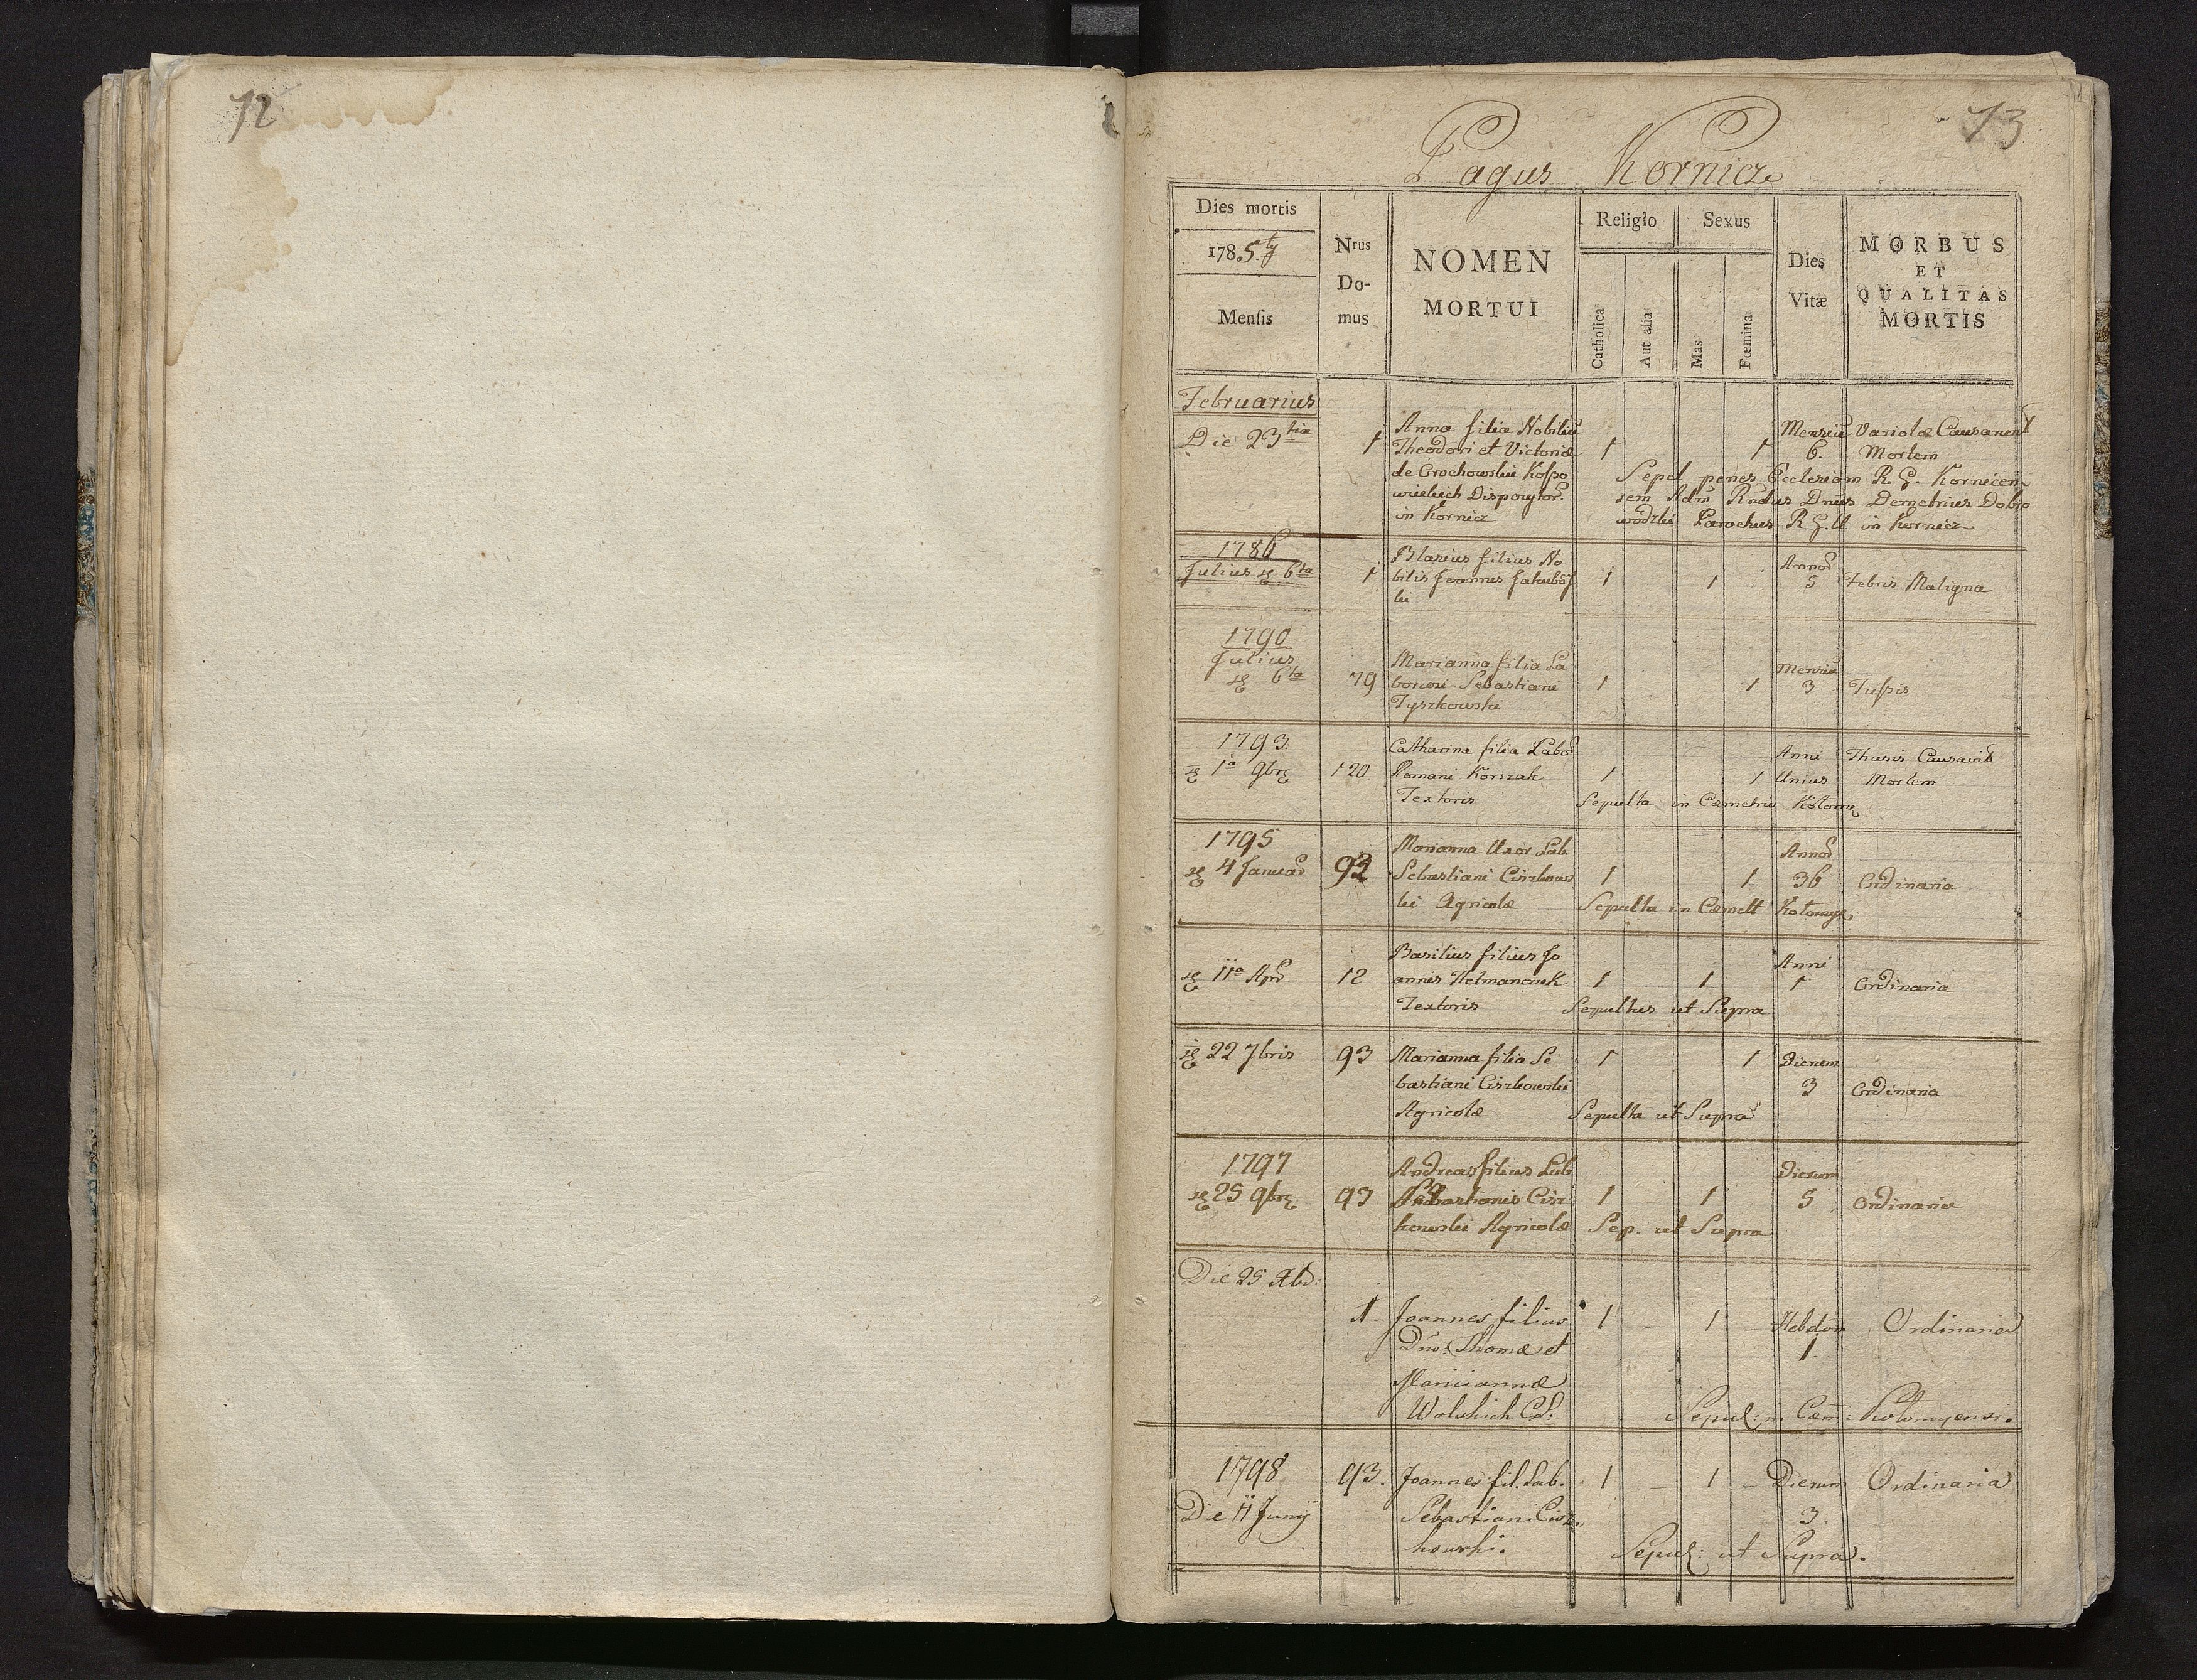 72
73
Pagus Kornicz
Dies mortis
1785
Mensis
Nrus
Do-
mus
NOMEN
MORTUI
Religio
Catholica
Aut alia
Sexus
Mas
Fœmina
Dies
Vitæ
MORBUS
ET
QUALITAS
MORTIS
Februarius
Die 23tia
1
Anna filia Nobiliu
Theodori et Victoriæ
de Grochowskie
in Kornicz
1
1
Mensiu
6.
Variolæ Causarunt
Mortem
Sepel penes Ecclesiam R. G. Kornicen
sem Adm Rndus Dnus Demetrius Dobro
wodzki Parochus R. G. U in Kornicz
1786
Julius 6ta
1
Blasius filius No
bilis Joannis Jakubos
ki
1
1
Annor
5
Febris Maligna
1790
Julius
6ta
79
Marianna filia La
boriosi Sebastiani
Tyszkowski
1
1
Mensiu
3
Tussis
1793.
1a 9bris
120
Catharina filia Labor
Romani Korszak
Textoris
1
1
Anni
Unius
Thusis Causavit
Mortem
Sepulta in Cæmetrio Kołomy
1795
4 Januar
92
Marianna Uxor Lab.
Sebastiani Ciszkows
ki Agricolæ
1
1
Annor
36
Ordinaria
Sepulta in Cæmett Kołomye
11a Apr
12
Basilius filius Jo
annis Hetmanczuk
Textoris
1
1
Anni
1
Ordinaria
Sepultus ut Supra
22 7bris
93
Marianna filia Se
bastiani Ciszkowski
Agricolæ
1
1
Dierum
3
Ordinaria
Sepulta ut Supra
1797
25 9bre
93
Andreas filius Lab
Sebastianis Cisz
kowski Agricolæ
1
1
Dierum
5
Ordinaria
Sep. ut Supra
Die 25 Xbr:
1
Joannes filius
Dnor: Thomæ et
Mariannæ
Wolskich
1
1
Hebdom
1.
Ordinaria
Sepul: in Cæm: Kołomyensi.
1798
Die 11 Junij
93.
Joannes fil. Lab.
Sebastiani Cisz
kowski.
1
1
Dierum
3.
Ordinaria
Sepul: ut Supra.